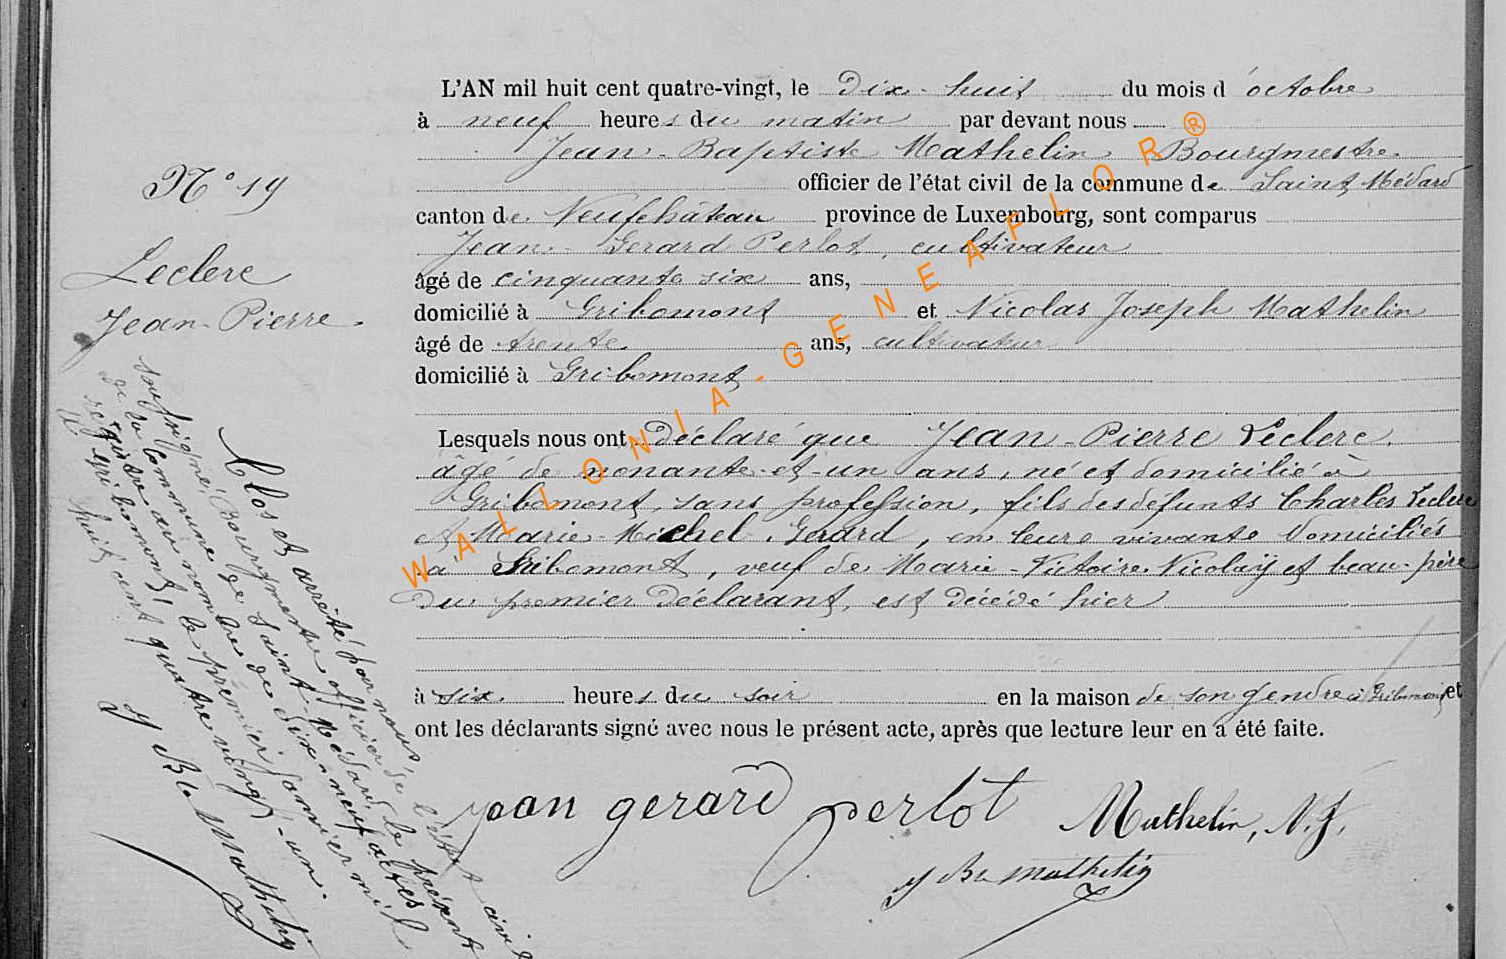 N° 19
Leclere
Jean-Pierre.
L'AN mil huit cent quatre-vingt, le dix-huit du mois d'octobre
à neuf heures du matin par devant nous
Jean-Baptiste Mathelin Bourgmestre
officier de l'état civil de la commune de Saint-Médard
canton de Neufchâteau province de Luxembourg, sont comparus
Jean-Gerard Perlot, cultivateur
âgé de cinquante six ans,
domicilié à Gribomont et Nicolas Joseph Mathelin
âgé de trente ans, cultivateur
domicilié à Gribomont
Lesquels nous ont déclaré que Jean-Pierre Leclere,
âgé de nonante-et-un ans, né et domicilié à
Gribomont, sans profession, fils des défunts Charles Leclere
et Marie-Michel Gerard, en leurs vivants domiciliés
à Gribomont, veuf de Marie-Victoire Nicolaÿ et beau-père
du premier déclarant, est décédé hier
à six heures du soir en la maison de son gendre à Gribomont et
ont les déclarants signé avec nous le présent acte, après que lecture leur en a été faite.
jean gerard perlot Mathelin, N. J.
J Bte Mathelin
Clos et arrêté par nous,
soussigné, Bourgmestre officier de l'état civil
de la commune de Saint-Médard, le présent
registre au nombre de dix-neuf actes
à Gribomont, le premier janvier mil
huit cent quatre vingt-un.
J Bte Mathelin
WALLONIA-GENEAFLOR®